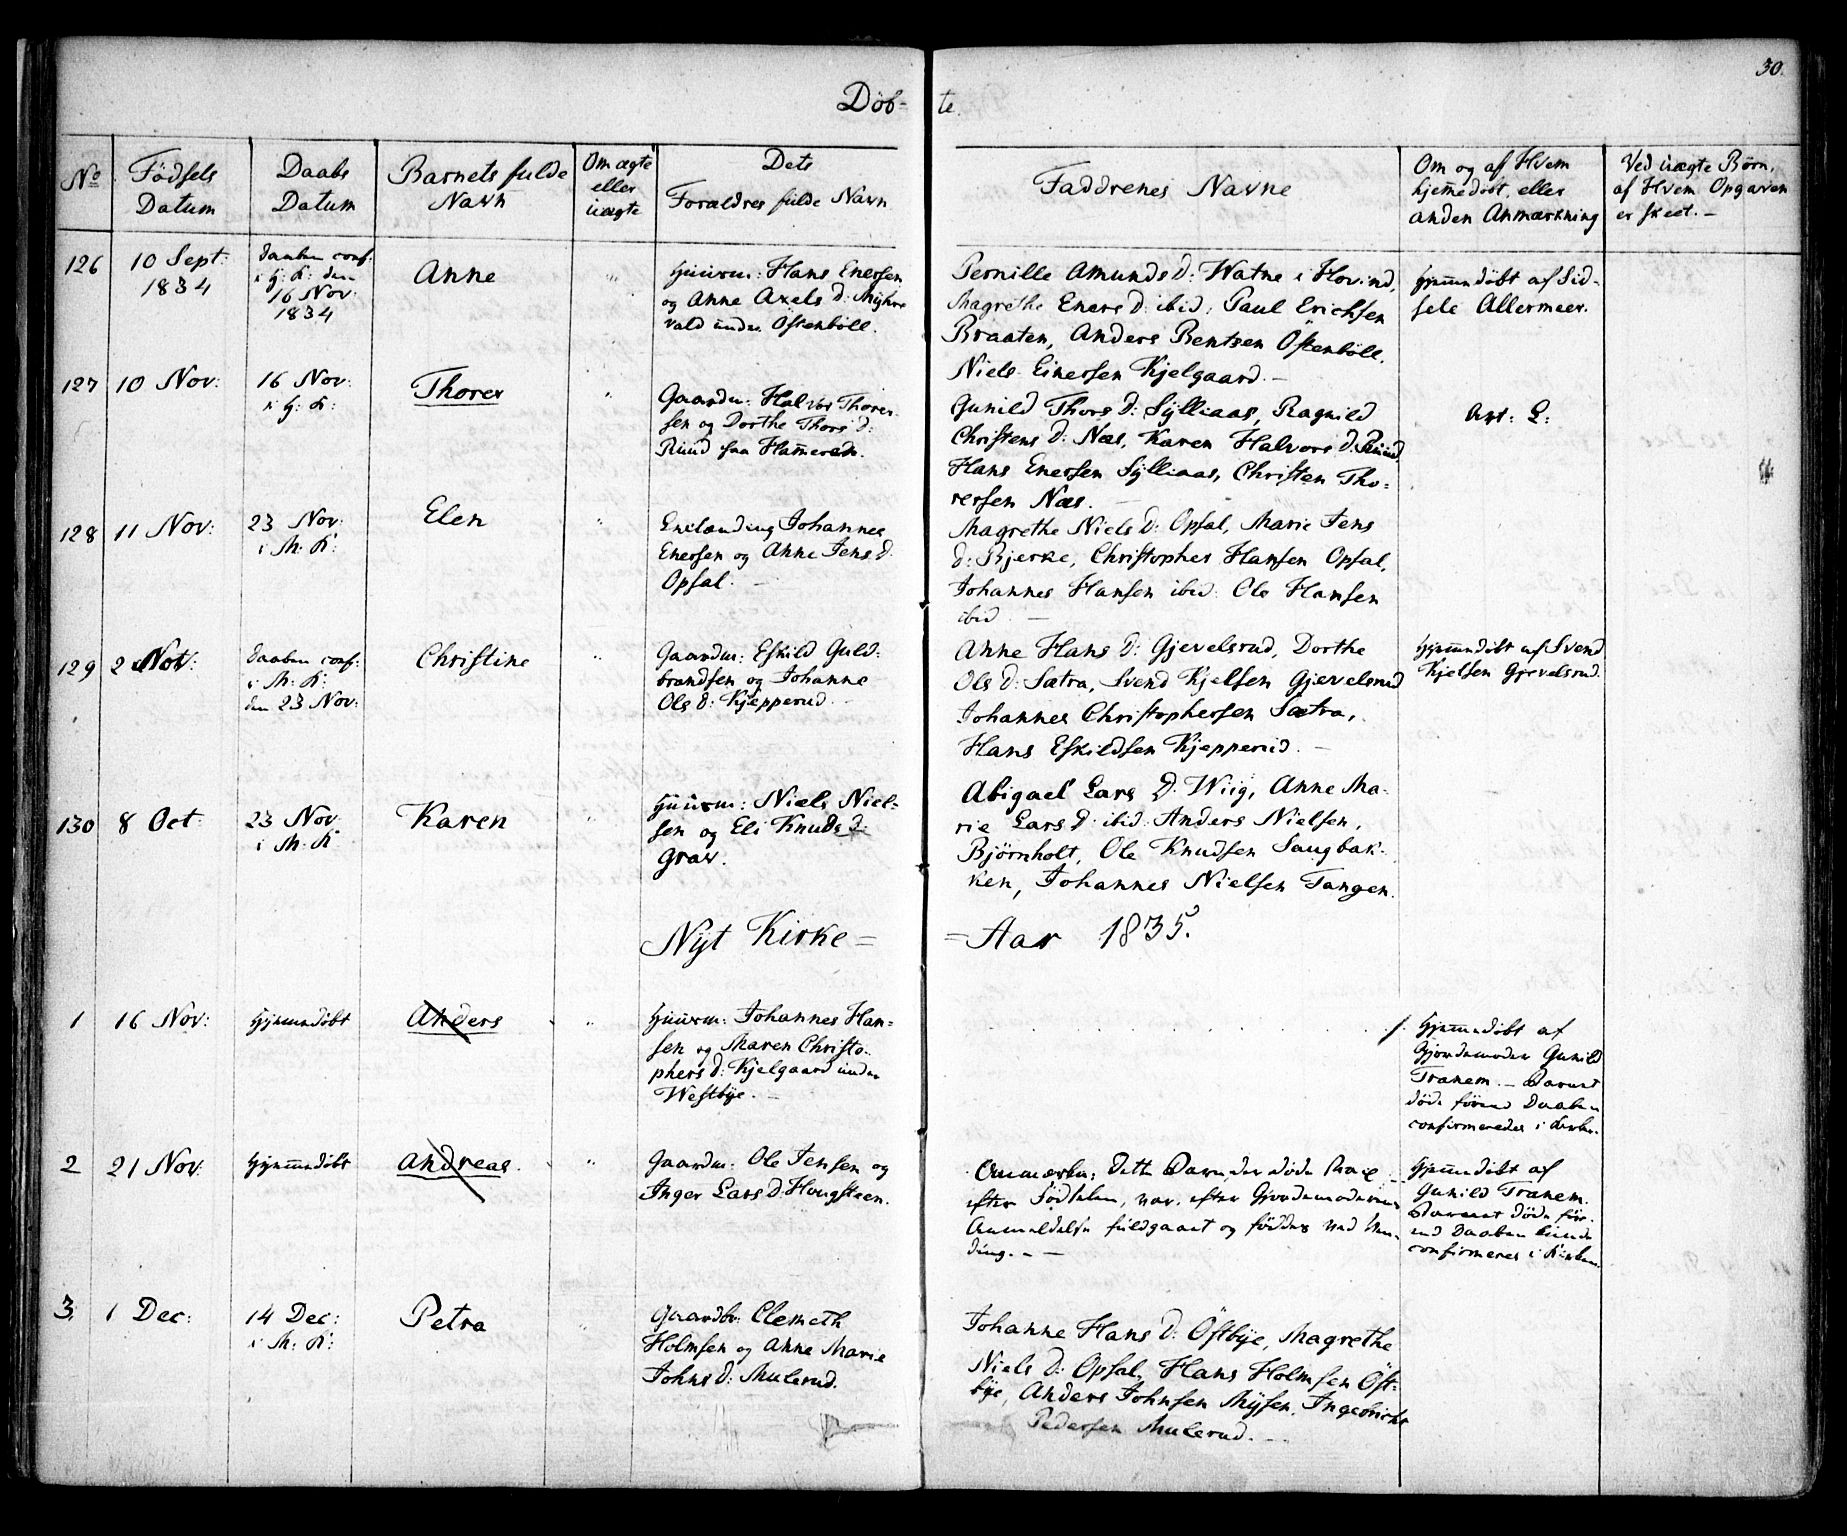 30.
Döb- te.
No Födsels Datum
Daabs Datum
Barnets fulde Navn
Om ægte eller uægte
Dets Forældres fulde Navn
Faddrenes Navne
Om og af Hvem hjemedöbt, eller anden Anmærkning
Ved uægte Børn, af Hvem Opgaven er skeet. -
126 10 Sept: 1834
Daaben conf: i H: K: den 16 Nov: 1834
Anne
Huusm: Hans Enersen
og Anne Axels D:
vald under Östenböll.
Pernille Amunds D: Watne i Hovind,
Magrethe Eners D: ibid: Paul Erichsen
Braaten, Anders Bentsen Östenböll.
Niels Einersen Kjelgaard. -
Hjemmedöbt af Sid-
sele Allermeer.
127 10 Nov:
16 Nov:
i H: K:
Thorer
Gaardm: Halvor Thorer-
sen og Dorthe Thors D:
Ruud paa Hammeren.
Gunild Thors D: Sÿlliaas, Ragnild
Christens D: Næs, Karen Halvors D: Ruud,
Hans Enersen Sÿlliaas, Christen Tho-
rersen Næs. -
128 11 Nov:
23 Nov:
i M: K:
Elen
Johannes
Enersen og Anne Jens D:
Opsal. -
Magrethe Niels D: Opsal, Marie Jens
D: Bjerke, Christopher Hansen Opsal,
Johannes Hansen ibid: Ole Hansen
ibid -
129 2 Nov:
Daaben conf:
i M: K:
den 23 Nov:
Christine
Gaardm: Eskild Guld-
brandsen og Johanne
Ols D: Kjepperud.
Anne Hans D: Gjevelsrud, Dorthe
Ols D: Sætra, Svend Kjelsen Gjevelsrud
Johannes Christophersen Sætra,
Hans Eskildsen Kjepperud. -
Hjemmedöbt af Svend
Kjelsen Gjevelsrud.
130 8 Oct:
23 Nov:
i M: K:
Karen
Huusm: Niels Niel-
sen og Eli Knuds D:
Grav.
Abigael Lars D: Wiig, Anne Ma-
rie Lars D: ibid: Anders Nielsen,
Björnholt, Ole Knudsen Saugbak-
ken, Johannes Nielsen Tangen.
Nÿt Kirke= =Aar 1835.
1 16 Nov:
Hjemmedöbt
Anders
Huusm: Johannes Han-
sen og Maren Christo-
phers D: Kjelgaard under
Westbÿe. -
Hjemmedöbt af
Gjordemoder Gunild
Tranem. - Barnet
döde førend Daaben
confirmeredes i Kirken.
2 21 Nov:
Hjemmedöbt
Andreas.
Gaardm: Ole Jensen og
Inger Lars D: Hougsteen.
Anmærkn: Dette Barn, der döde strax
efter Födselen, var, efter Gjordemoderens
Anmeldelse fuldgaaet ogföddes ved
-
Hjemmedöbt af
Gunild Tranem.
Barnet döde för-
end Daaben kunde
confirmeres i Kirken.
3 1 Dec:
14 Dec:
i M: K:
Petra
Clemeth
Holmsen og Anne Marie
Johns D: Mulerud.
Johanne Hans D: Östbÿe, Magrethe
Niels D: Opsal, Hans Holmsen Öst-
bÿe, Anders Johnsen Mÿsen, Ingebricht
Pedersen Mulerud. -